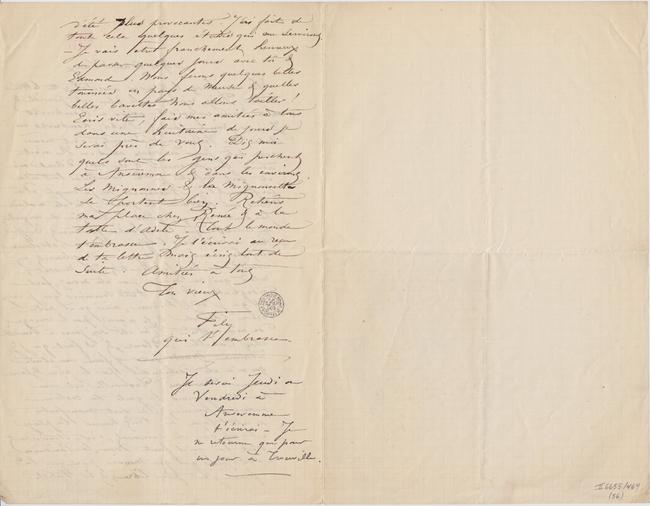 été plus provocantes. J'ai fait de
tout cela quelques études qui me serviront
– Je vais être franchement heureux
de passer quelques jours avec toi &
Edmond. Nous ferons quelques belles
tournées en pays de Meuse & quelles
belles bavettes nous allons tailler !
Ecris vite, fais mes amitiés à tous
dans une huitaine de jours je
serai près de vous. Dis moi
quels sont les gens qui pêchent
à Anseremme & dans les environs,
Les Mignonnes & les Mignonnettes
se portent bien. Retiens
ma place chez Renée & à la
table d'hôte. Tout le monde
t'embrasse. Je t'écrirai au reçu
de ta lettre mais écris tout de
suite. Amitiés à tous
Ton vieux
Fély
qui t'embrasse
Je serai Jeudi ou
Vendredi à
Anseremme
t'écrirai – Je
ne retourne que pour
un jour à Trouville.
II 6655/464
(56)